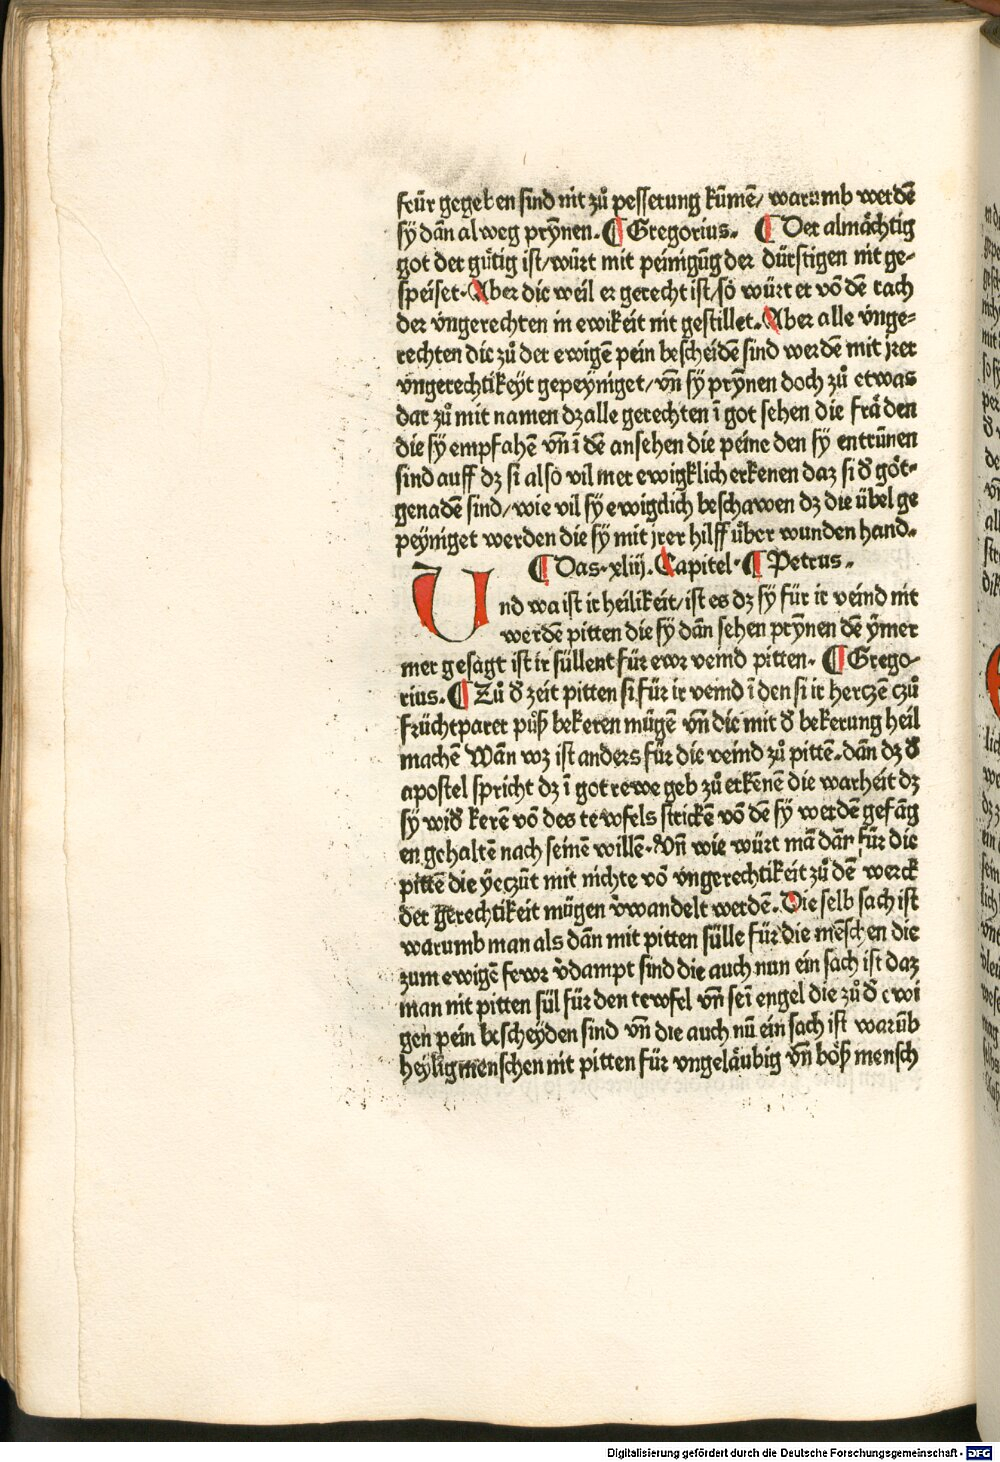 feür gegeben sind nit zů pesserung kūmē/ warumb werdē
sÿ dān alweg prÿnen. ¶ Gregorius. ¶ Der almåchtig
got der gůtig ist/würt mit peinigūg der dürftigen nit ge⸗
speiset. Aber die weil er gerecht ist/so würt er vō dē rach
der vngerechten in ewikeit nit gestillet. Aber alle vnge⸗
rechten die zů der ewigē pein bescheidē sind werdē mit jrer
vngerechtikeÿt gepeyniget/vn̄ sÿ prÿnen doch zů etwas
dar zů mit namen dz alle gerechten ī got sehen die fråden
die sÿ empfahē vn̄ ī dē ansehen die peine den sÿ entrūnen
sind auff dz si also vil mer ewigklich erkenen daz si d̄ göt⸗
genadē sind/wie vil sÿ ewigclich beschawen dz die übel ge
peÿniget werden die sÿ mit jrer hilff über wunden hand.
¶ Das .xliij. Capitel. ¶ Petrus.
Und wa ist ir heilikeit/ist es dz sÿ für ir veind nit
werdē pitten die sÿ dān sehen prÿnen dē ÿmer
mer gesagt ist ir süllent für ewr veind pitten. ¶ Grego⸗
rius. ¶ Zů d̄ zeit pitten si für ir veind ī den si ir hertzē czů
früchtparer půß bekeren mügē vn̄ die mit d̄ bekerung heil
machē Wān wz ist anders für die veind zů pittē. dān dz d̄
apostel spricht dz ī got rewe geb zů erkēnē die warheit dz
sÿ wid̄ kerē vō des tewfels strickē vō dē sÿ werdē gefāg
en gehaltē nach seinē willē. Vn̄ wie würt mā dān für die
pittē die ÿeczūt mit nichte vō vngerechtikeit zů dē werck
der gerechtikeit mügen v̄wandelt werdē. Die selb sach ist
warumb man als dān mit pitten sülle für die mēschen die
zum ewigē fewr v̄dampt sind die auch nun ein sach ist daz
man nit pitten sül für den tewfel vn̄ sei engel die zů d̄ ewi
gen pein bescheÿden sind vn̄ die auch nū ein sach ist warūb
heÿlig menschen nit pitten für vngelåubig vn̄ böß mensch
Digitalisierung gefördert durch die Deutsche Forschungsgemeinschaft - DFG